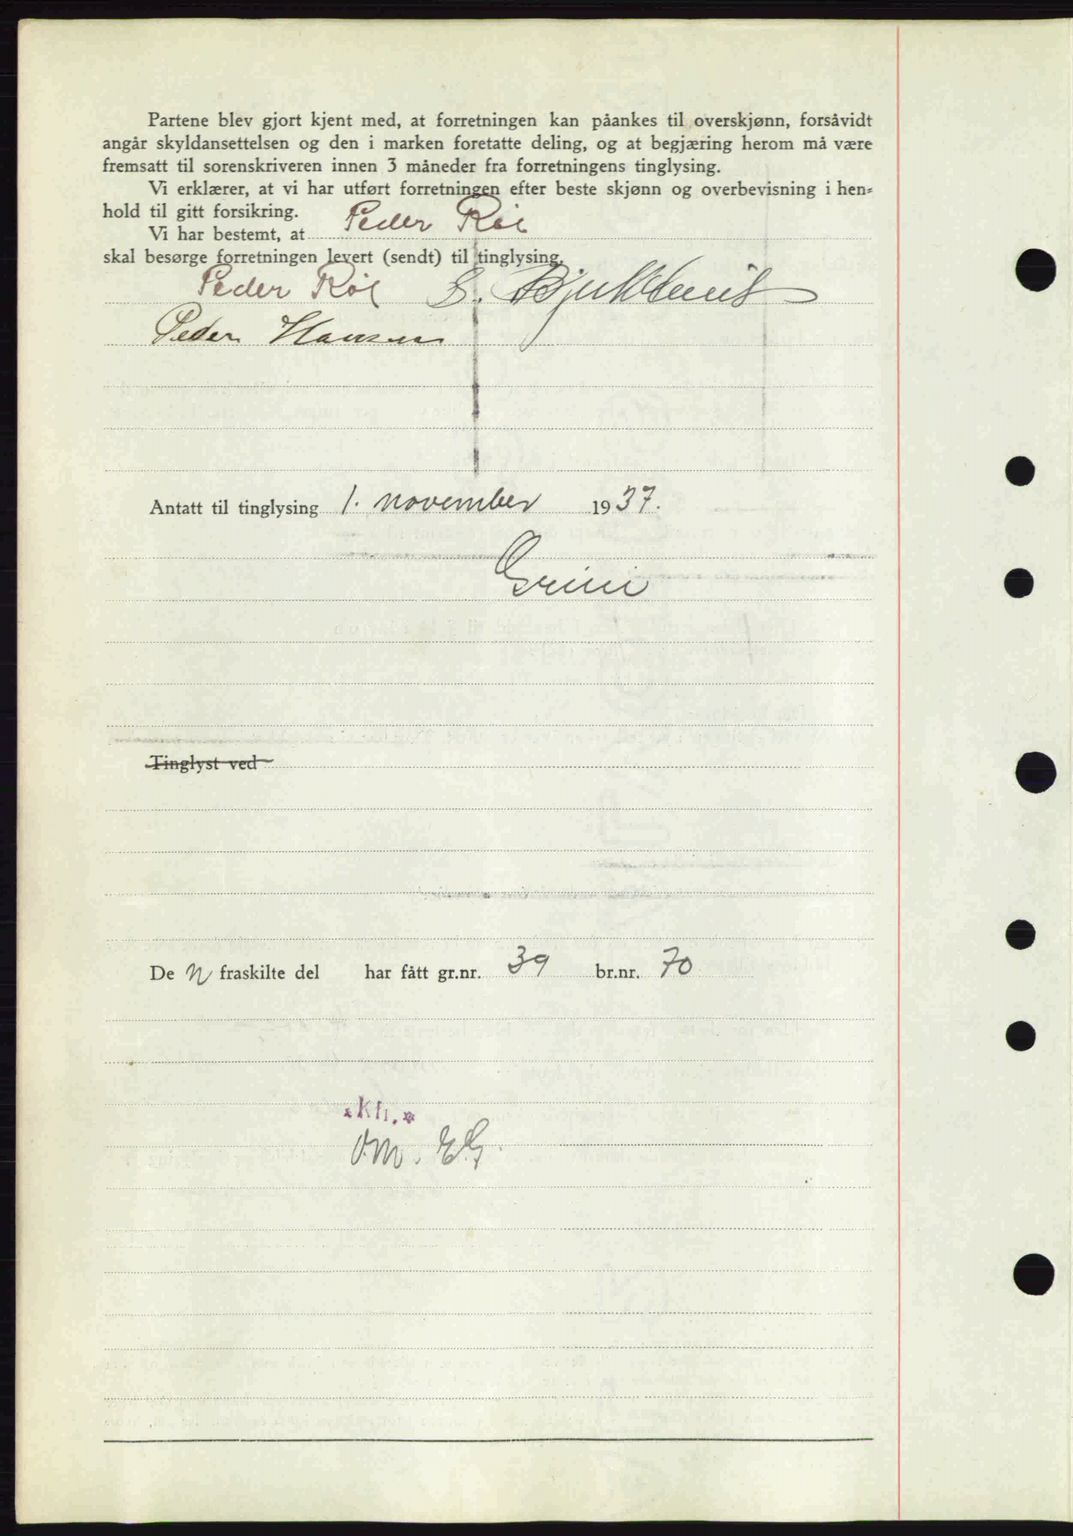 Partene blev gjort kjent med, at forretningen kan påankes til overskjønn, forsåvidt
angår skyldansettelsen og den i marken foretatte deling, og at begjæring herom må være
fremsatt til sorenskriveren innen 3 måneder fra forretningens tinglysing.
Vi erklærer, at vi har utført forretningen efter beste skjønn og overbevisning i hen-
hold til gitt forsikring.
Vi har bestemt, at Peder Röe
skal besørge forretningen levert (sendt) til tinglysing.
Peder Röe
Peder Hansen
Antatt til tinglysing 1. november 1937.
Grini
Tinglyst ved
De n fraskilte del har fått gr.nr. 39 br.nr. 70
Kfr.
O.M. EG.